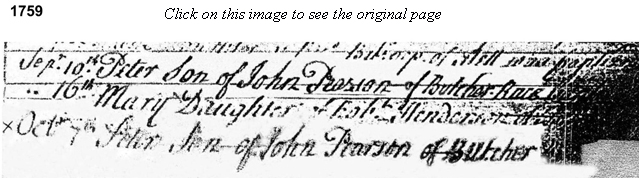 1759
Click on this image to see the original page
Sepr. 10th. Peter Son of John Pearson of Butcher Race
.. 16th Mary Daughter of Robt. Henderson
x Octr 7th Peter Son of John Pearson of Butcher